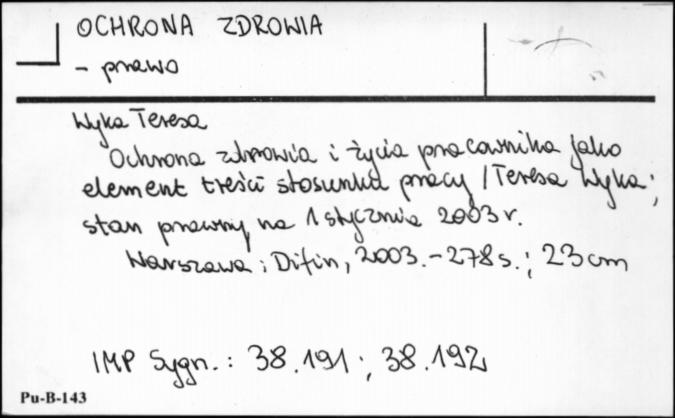 OCHRONA ZDROWIA
- prawo
Wyka Teresa
Ochrona zdrowia i życia pracownika jako
element treści stosunku pracy / Teresa Wyka;
stan prawny na 1 stycznia 2003 r.
Warszawa: Difin, 2003. - 278 s.; 23 cm
IMP Sygn.: 38.191; 38.192
Pu-B-143